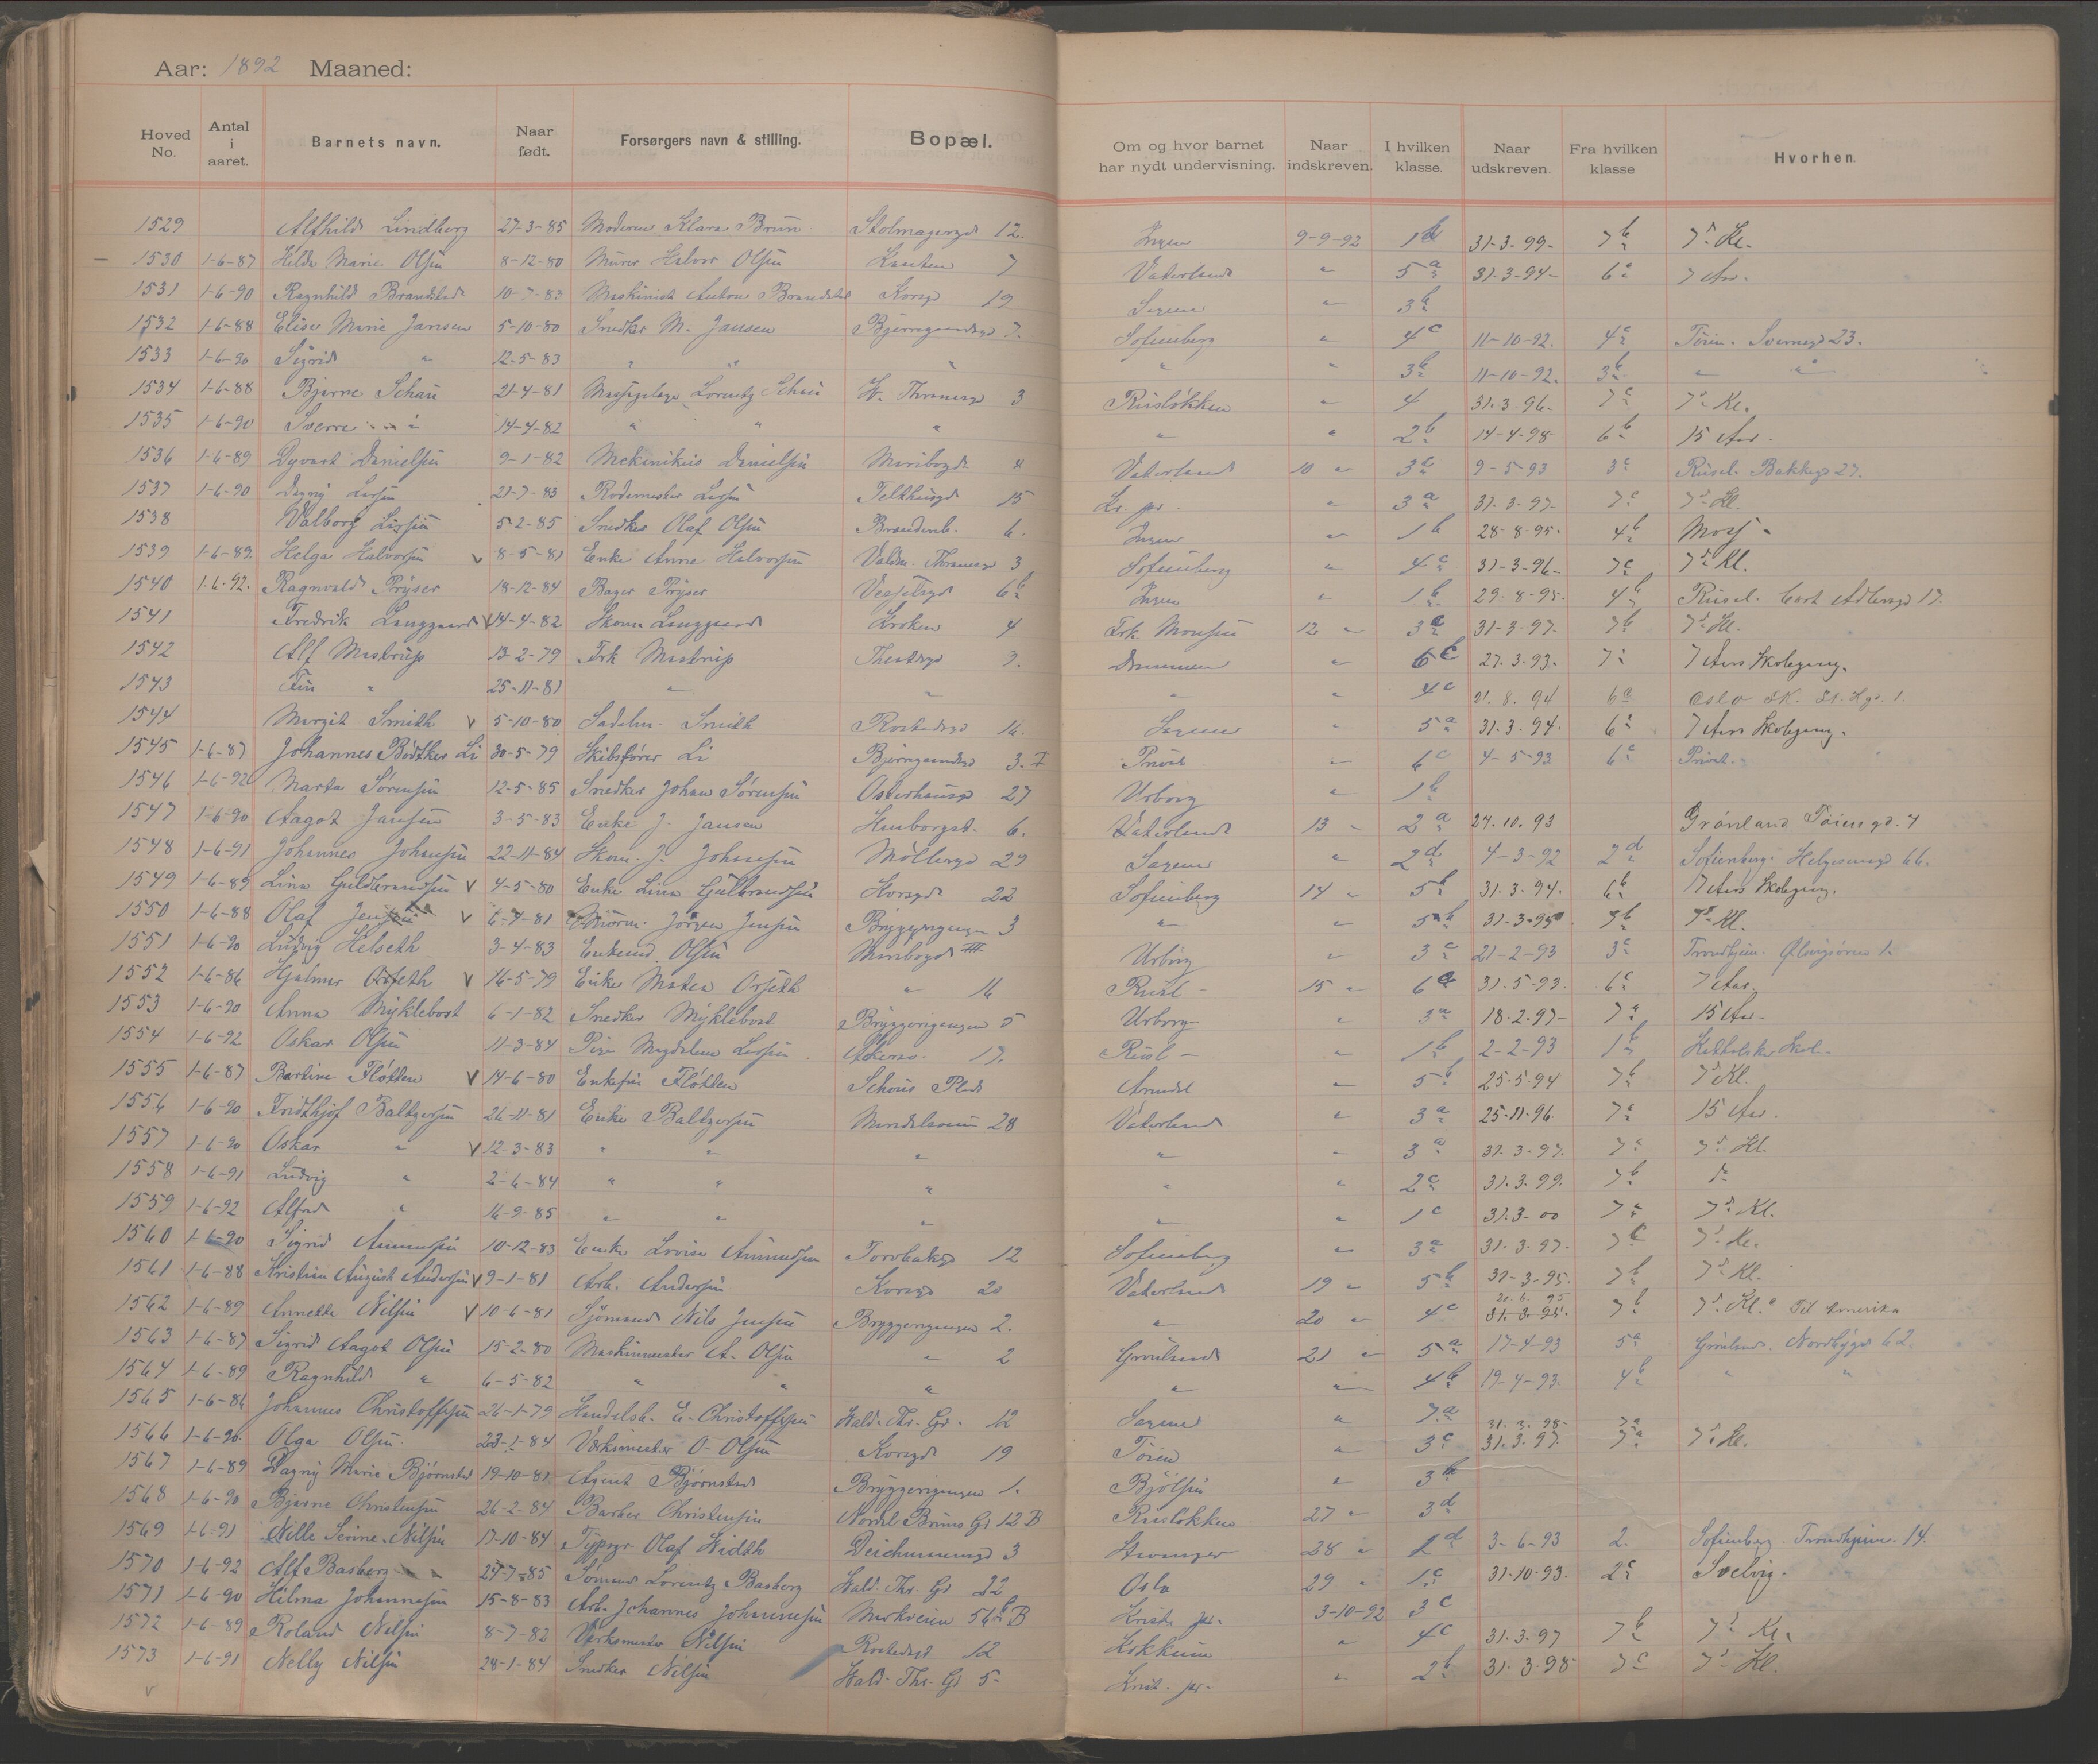 Aar: 1892 Maaned:
Hoved No. Antal i aaret. Barnets navn. Naar født. Forsørgers navn & stilling. Bopæl. Om og hvor barnet har nydt undervisning. Naar indskreven. I hvilken klasse. Naar udskreven. Fra hvilken klasse Hvorhen.
1529 Alfhild Lindberg 27-3-85 Moderen Klara Brun Stolmagergd 12. Ingen 9-9-92 1 b 31-3-99- 7 b 7d Kl.
1530 1-6-87 Hilda Marie Olsen 8-12-80 Murer Halvor Olsen 7 Vaterland " 5 a 31-3-94- 6 7 Aar.
1531 1-6-90 Ragnhild Brandstad 10-7-83 Maskinist Anton Brandstad Korsgd 19 " 3 b
1532 1-6-88 Elise Marie Jansen 5-10-80 Snedker M. Jansen 7. Sofienberg " 4 c 11-10-92. 4 c Tøien. 23.
1533 1-6-90 Sigrid " 12-5-83 " " " " " 3 b 11-10-92. 3 b " "
1534 1-6-88 Bjarne Schau 21-4-81 Lorentz Schau W. Thranesgd 3 Rusløkken " 4 31.3.96- 7 c 7d Kl.
1535 1-6-90 Sverre " 14-4-82 " " " " " 2 b 14-4-98 6 b 15 Aar.
1536 1-6-89 Danielsen 9-1-82 Mekanikus Danielsen Maribogd. 4 Vaterland 10 " 3 c 9-5-93 3 c Rusel. Bakkegd 27.
1537 1-6-90 Dagny 21-7-83 Rodemester Telthusgd 15 Kr. pr. " 3 a 31.3-97- 7 c 7d Kl.
1538 Valborg 5-2-85 Snedker Olaf Olsen Brandenb. 6. Ingen " 1 b 28-8-95- 4 b Moss
1539 1-6-89. Helga Halvorsen v 8-5-81 Enke Anne Halvorsen Valdm. Thranesgd 3 Sofienberg " 4 c 31-3-96- 7 c 7d Kl.
1540 1-6-92. Ragnvald Pryser 18-12-84 Bager Pryser Vesselsgd 6 b Ingen " 1 b 29.8-95. 4 b Rusel. Cort Adlersgd 17.
1541 Fredrik Langgaard v 14-4-82 Skom. Langgaard Kroken 4 Frk. Monsen 12 " 3 31-3-97. 7 b 7d Kl.
1542 Alf Mastrup 13-2-79 Frk Mastrup Theatergd 7. Drammen " 6 c 27.3.93- 7 7 Aars Skolegang.
1543 Fin " 25-11-81 " " " " 4 c 21.8.94 6 a Oslo Sk. St. Hgd. 1.
1544 Margit Smith v 5-10-80 Sadelm. Smith Rostedsgd 16. " 5 a 31.3.94. 6 7 Aars Skolegang.
1545 1-6-87 Johannes Bødtker Li 30-5-79 Skibsfører Li 3.7 Privat " 6 c 4-5-93 6 c Privat.
1546 1-6-92 Marta Sørensen 12-5-85 Snedker Johan Sørensen Osterhausgd 27 Urborg " 1 b
1547 1-6-90 Aagot Jansen 3-5-83 Enke J. Jansen 6. Vaterland 13 - 2 a 24.10.93 Grønland Tøiengd. 4
1548 1-6-91 Johannes Johansen 22-11-84 Skom. J. Johansen Møllergd 27 " 2 d 4-3-92 2 d Sofienberg. Helgesensgd 66.
1549 1-6-89 Lina Guldbrandsen v 4-5-80 Enke Lina Gulbrandsen Korsgd 22 Sofienberg 14 - 5 b 31.3.94. 6 b 7 Aars Skolegang.
1550 1-6-88 Olaf Jensen v 6-4-81 Jørgen Jensen Bryggerigangen 3 " " 5 b 31-3-95 7 b 7d Kl.
1551 1-6-90 Ludvig Helseth 3-4-83 Enkemd. Olsen Maribogd III Urborg " 3 c 21-2-93 3 c
1552 1-6-86 Hjalmar Orseth v 16-5-79 Enke Matea Orseth " 16 Rusl - 15 " 6 c 31.5-93. 6 c 7 Aar.
1553 1-6-90 Anna Myklebost 6-1-82 Snedker Myklebost Bryggerigangen 5 Urborg " 3 a 18.2-97- 7 a 15 Aar
1554 1-6-92 Oskar Olsen 11-3-84 Pige Magdalene Akersv. 17. Rusl - " 1 b 2-2-93 1 b Katholske Skole
1555 1-6-87 Bartine Fløtten v 14-6-80 Enkefru Fløtten Schous Plads Arendal " 5 b 25-5-94 7 b 7d Kl.
1556 1-6-90 Fridthjof Baltzersen 26-11-81 Enke Baltzersen 28 Vaterland " 3 a 25-11-96. 7 c 15 Aar.
1557 1-6-90 Oskar " v 12-3-83 " " " " " 3 a 31.3-97. 7 c 7d Kl.
1558 1-6-91 Ludvig " 2-6-84 " " " " " 2 c 31.3.99. 7 b
1559 1-6-92 Alfred " 16-9-85 " " " " " 1 c 31.3-00 7 a 7d Kl.
1560 1-6-90 Sigrid Amundsen 10-12-83 Enke Lovise Amundsen Torvbakgd 12 Sofienberg " 3 a 31.3-97. 7 7d Kl.
1561 1-6-88 Kristian August Andersen v 9-1-81 Arb. Andersen Korsgd 20 Vaterland 19 " 5 b 31-3-95. 7 b 7d Kl.
1562 1-6-89 Annette Nilsen v 10-6-81 Sjømand Nils Jensen Bryggerigangen 2. " 20 " 4 c 31.3-95. 7 b 7d Kl. Til Amerika
1563 1-6-87 Sigrid Aagot Olsen 15-2-80 Maskinmester A. Olsen " 2 Grønland 21 " 5 a 17-4-93 5 a Grønland. Nordbygd 62.
1564 1-6-89 Ragnhild " 6-5-82 " " " " " 4 b 19-4-93. 4 b " "
1565 1-6-86 Johannes Christoffersen 26-1-79 Handelsb. E. Christoffersen Wald. Thr. Gd. 12 " 7 a
1566 1-6-90. Olga Olsen 23-1-84 Værksmester O. Olsen Korsgd 19 Tøien " 3 c 31.3.97. 7 a 7d Kl.
1567 1-6-89 Dagny Marie Bjørnstad 19-10-81 Agent Bjørnstad Bryggerigangen 1. Bjølsen " 3 b
1568 1-6-90 Bjarne Christensen 26-2-84 Barber Christensen Nordal Bruns Gd 12 B Rusløkken 27 " 3 d
1569 1-6-91 Nille Serine Nilsen 17-10-84 Typogr Olaf Width Deichmannsgd 3 Stavanger 28 " 2 d 3-6-93 2. Sofienberg. Trondhjemv. 14.
1570 1-6-92 Alf Basberg 27-7-85 Sømand Lorentz Basberg Wald. Thr. Gd 22 Oslo 29 " 1 c 31-10-93. 2 c Svelvig.
1571 1-6-90 Hilma Johannesen 15-8-83 Arb. Johannes Johannesen Markveien 56 B Krist. pr. 3-10-92 3 c
1572 1-6-89 Roland Nilsen 8-7-82 Værksmester Nilsen Rostedsgd 12 " 4 c 31.3-97 7 b 7d Kl.
1573 1-6-91 Nelly Nilsen 28-1-84 Snedker Nilsen Wald. Thr. Gd 5- Krist. pr. " 2 b 31.3-98 7 c 7d Kl.